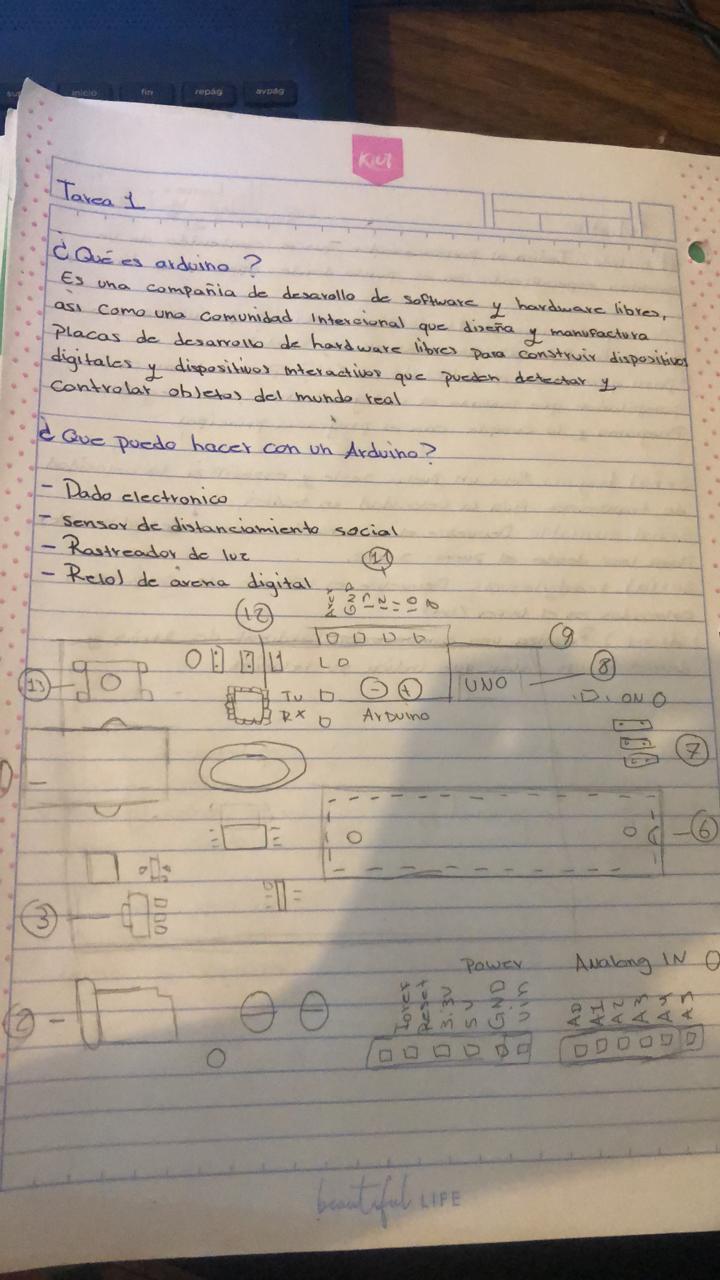 inicio
fin
repág
avpág
Kiut
Tarea 1
¿Qué es arduino?
Es una compañia de desarollo de software y hardware libres,
asi como una comunidad Intercional que diseña y manufactura
placas de desarrollo de hardware libres para construir dispositivos
digitales y dispositivos interactivos que pueden detectar y
controlar objetos del mundo real
¿Que puedo hacer con un Arduino?
- Dado electronico
- sensor de distanciamiento social
- Rastreador de luz
- Reloj de arena digital
11
12
9
13
L
8
UNO
- +
ON
RX
Arduino
7
6
3
Power
Analong IN
2
Reset
3.3V
5V
GND
Vin
A0
A1
A2
A3
A4
A5
beautiful LIFE